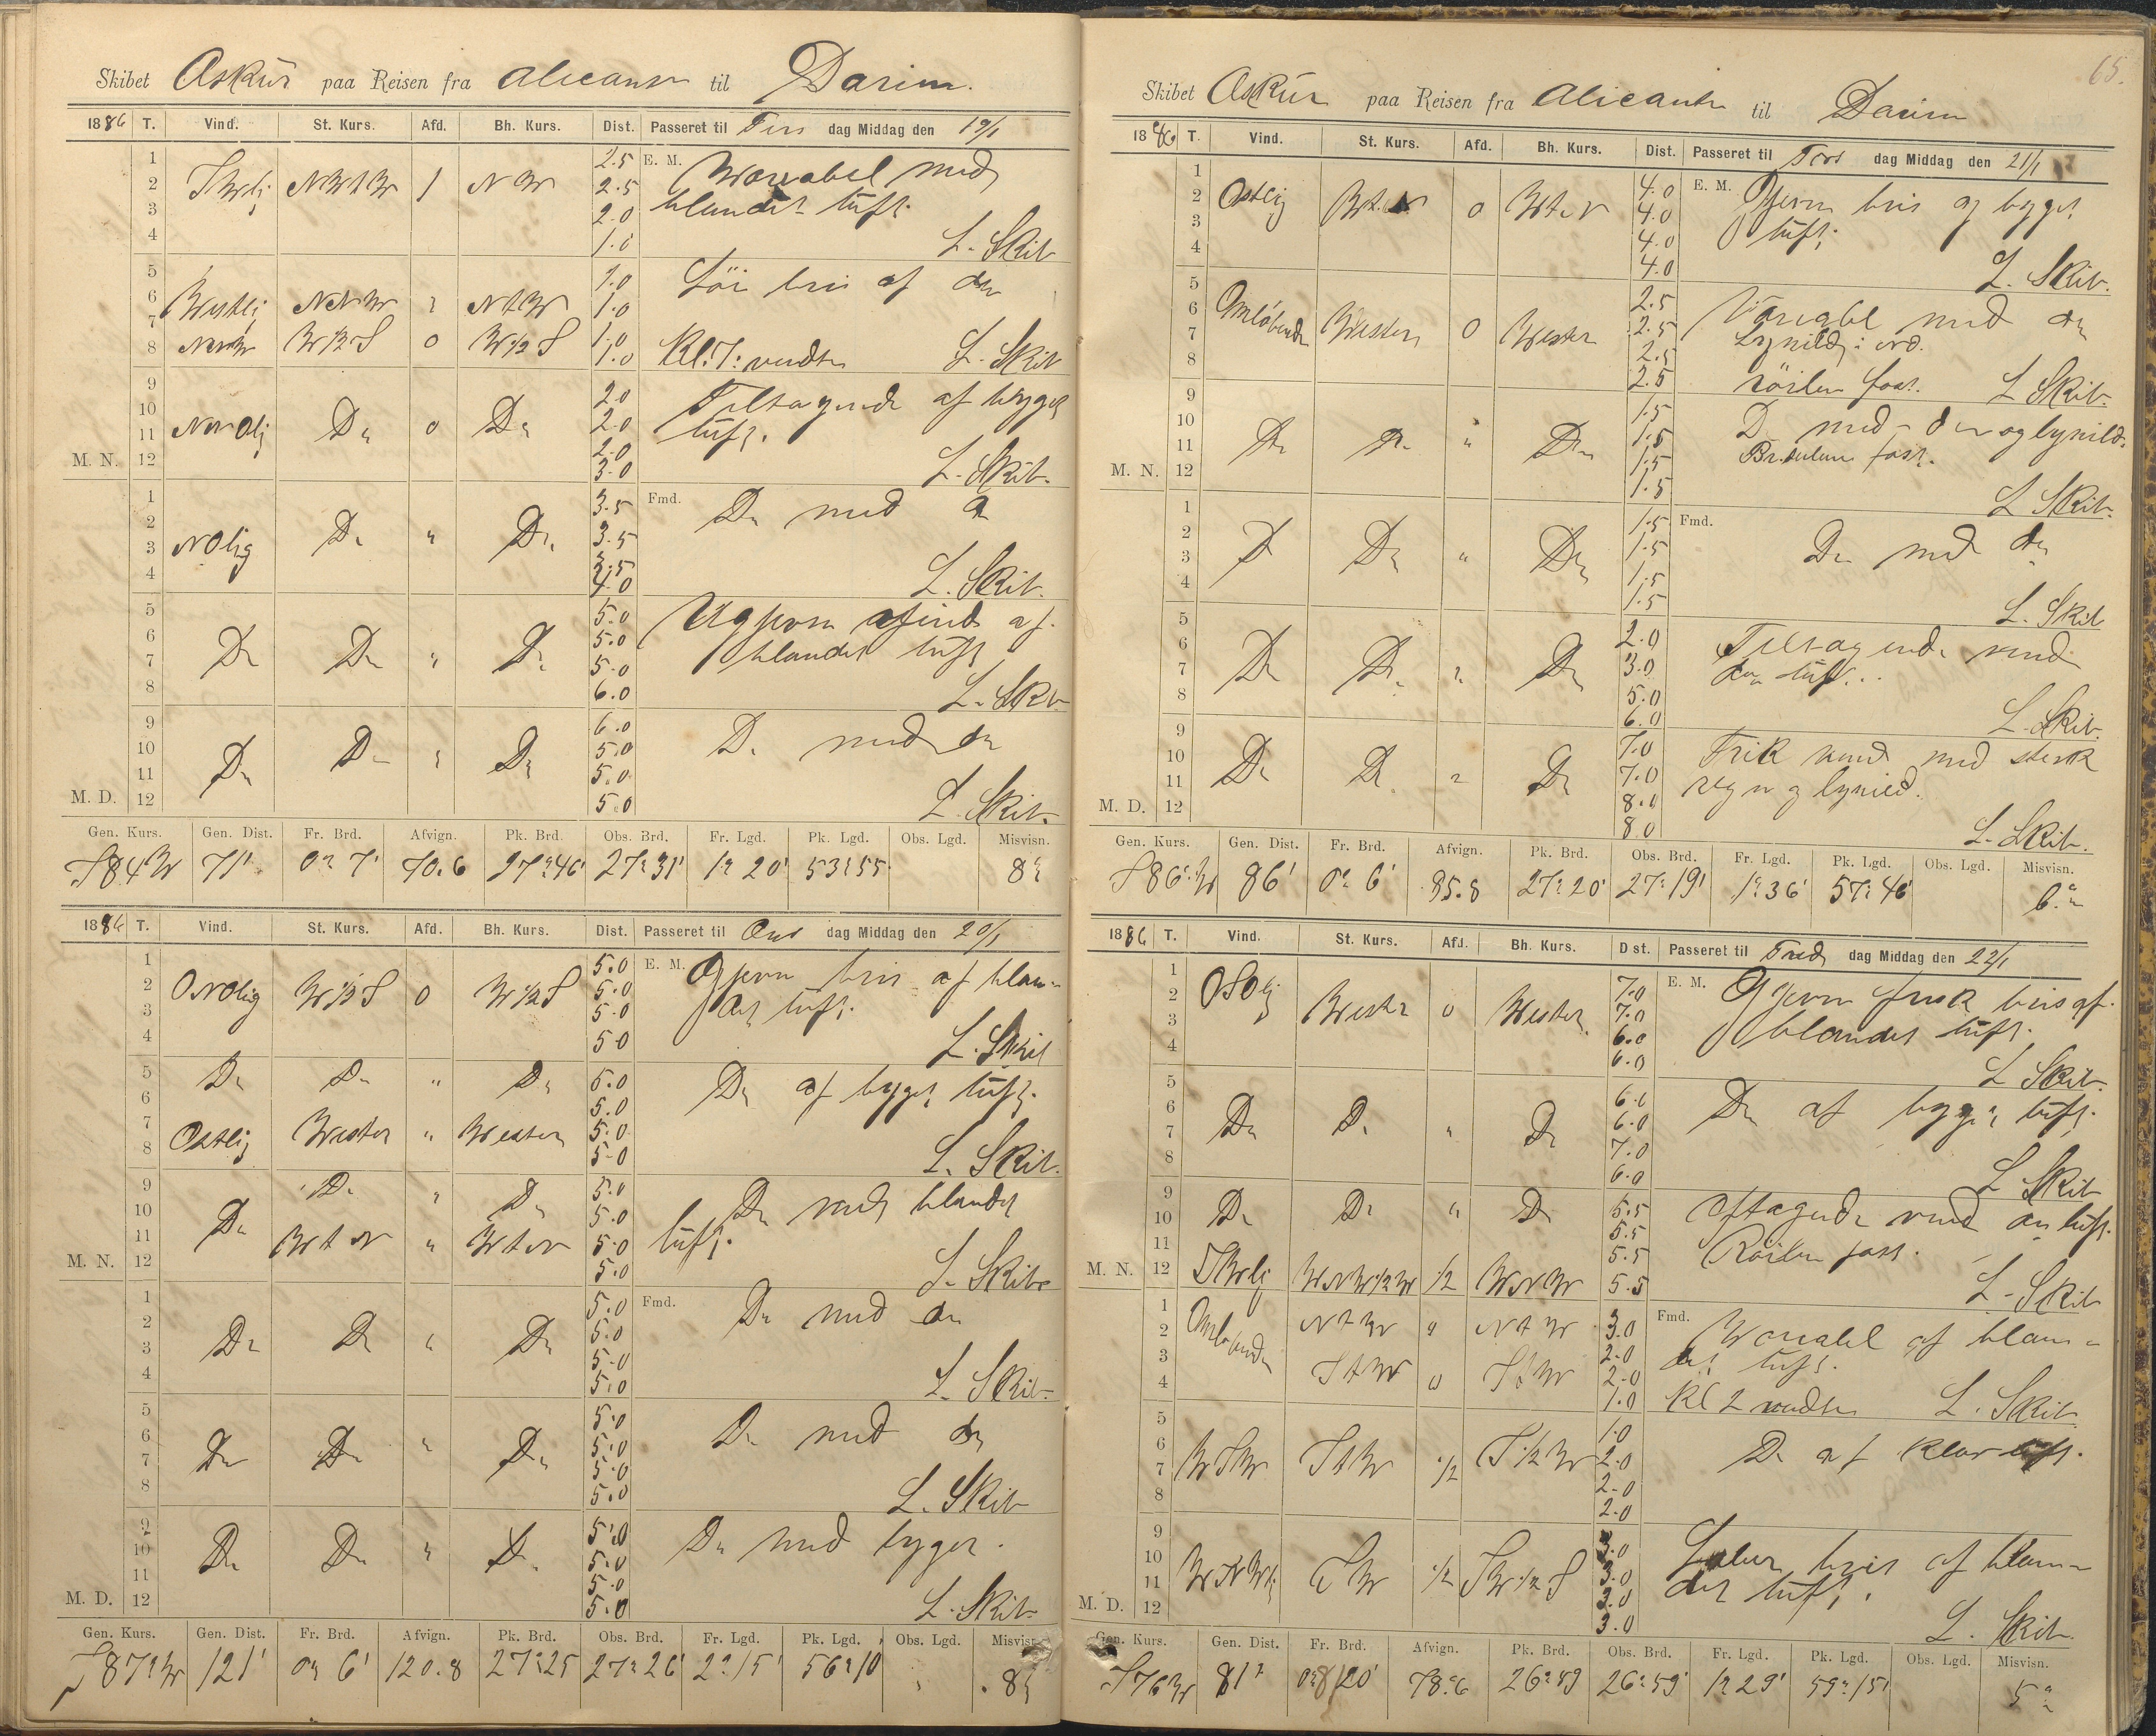 Skibet Askur paa Reisen fra Alicante til Darien.
1886 T. Vind. St. Kurs. Afd. Bh. Kurs. Dist. Passeret til Tirs dag Middag den 19/1
1 2.5 E. M. Variabel med
2 SWlig NWtW 1 NW 2.5 blandet luft.
3 2.0
4 1.0 L. Skib
5 1.0 Löi bris af do
6 Westlig NNW " NtW 1.0
7 1.0
8 W½S 0 W½S 1.0 Kl: 7: vendte L. Skib
9 2.0 Tiltagende af bygget
10 2.0 luft.
11 Do 0 Do 2.0
M. N. 12 3.0 L. Skib.
1 3.5 Fmd. Do med do
2 3.5
3 NOlig Do " Do 3.5
4 4.0 L. Skib.
5 5.0
6 5.0 blandet luft
7 Do Do " Do 5.0
8 6.0 L. Skib
9 6.0 Do med do
10 5.0
11 Do Do " Do 5.0
M. D. 12 5.0 L. Skib.
Gen. Kurs. Gen. Dist. Fr. Brd. Afvign. Pk. Brd. Obs. Brd. Fr. Lgd. Pk. Lgd. Obs. Lgd. Misvisn.
S84W 71' 0° 7' 70.6 27°46' 27°31' 1° 20' 53°55 8°
1886 T. Vind. St. Kurs. Afd. Bh. Kurs. Dist. Passeret til Ons dag Middag den 20/1
1 5.0 E. M. Gjevn bris af blan-
2 ONOlig W½S 0 W½S 5.0 det luft.
3 5.0
4 5.0 L. Skib
5 Do Do " Do 5.0 Do af bygget luft.
6 5.0
7 Ostlig Wester " Wester 5.0
8 5.0 L. Skib.
9 Do " Do 5.0 Do med blandet
10 Do 5.0 luft.
11 WtN " WtN 5.0
M. N. 12 5.0 L. Skib
1 5.0 Fmd. Do med do
2 Do Do " Do 5.0
3 5.0
4 5.0 L. Skib
5 5.0 Do med do
6 Do Do " Do 5.0
7 5.0
8 5.0 L. Skib
9 5.0 Do med byger.
10 Do Do " Do 5.0
11 5.0
M. D. 12 5.0 L. Skib
Gen. Kurs. Gen. Dist. Fr. Brd. Afvign. Pk. Brd. Obs. Brd. Fr. Lgd. Pk. Lgd. Obs. Lgd. Misvisn.
S87°W 121' 0° 6' 120.8 27°25 27°26' 2°15' 56°10 8°
65.
Skibet Askur paa Reisen fra Alicante til Darien
1886 T. Vind. St. Kurs. Afd. Bh. Kurs. Dist. Passeret til Tors dag Middag den 21/1
1 4.0 E. M. Gjevn bris og bygget
2 Ostlig WtN 0 WtN 4.0 luft.
3 4.0
4 4.0 L. Skib.
5 2.5 Variabel med do
6 Omløbende Wester 0 Wester 2.5 Lynild i
7 2.5
8 2.5 röilen fast. L Skib.
9 1.5 Do med do og lynild.
10 Do Do " Do 1.5 fast.
11 1.5
M. N. 12 1.5 L Skib.
1 1.5 Fmd.
2 Do Do " Do 1.5 Do med do
3 1.5
4 1.5 L. Skib
5 2.0 Tiltagende vind
6 Do Do " Do 3.0 do luft.
7 5.0
8 6.0 L. Skib.
9 7.0 Frisk vind med sterk
10 Do Do " Do 7.0 regn og lynild.
11 8.0
M. D. 12 8.0 L. Skib.
Gen. Kurs. Gen. Dist. Fr. Brd. Afvign. Pk. Brd. Obs. Brd. Fr. Lgd. Pk. Lgd. Obs. Lgd. Misvisn.
S86°W 86' 0° 6' 85.8 27°20' 27°19' 1°36' 57°46' 6°
1886 T. Vind. St. Kurs. Afd. Bh. Kurs. Dist. Passeret til Fred dag Middag den 22/1
1 7.0 E. M. Gjevn frisk bris af
2 OSOlig Wester 0 Wester 7.0 blandet luft.
3 6.0
4 6.0 L Skib.
5 6.0 Do af bygget luft.
6 Do Do " Do 6.0
7 7.0
8 6.0 L Skib
9 Do Do " Do 5.5 aftagende vind do luft.
10 5.5 Röilen fast.
11 5.5
M. N. 12 SWlig WNW½W ½ WNW 5.5 L. Skib
1 Omløbende NtW " NtW 3.0 Fmd. Variabel af blan-
2 2.0 det luft.
3 StW 0 StW 2.0
4 1.0 Kl 2 vendte L. Skib
5 1.0
6 WSW StW ½ S½W 2.0 Do af klar luft.
7 2.0
8 2.0
9 3.0 Laber bris af blan-
10 WNWlig SW ½ SW½S 3.0 det luft.
11 3.0
M. D. 12 3.0 L. Skib
Gen. Kurs. Gen. Dist. Fr. Brd. Afvign. Pk. Brd. Obs. Brd. Fr. Lgd. Pk. Lgd. Obs. Lgd. Misvisn.
S76W 81' 78.6 26°59 26°59' 1°29' 59°15' 5°